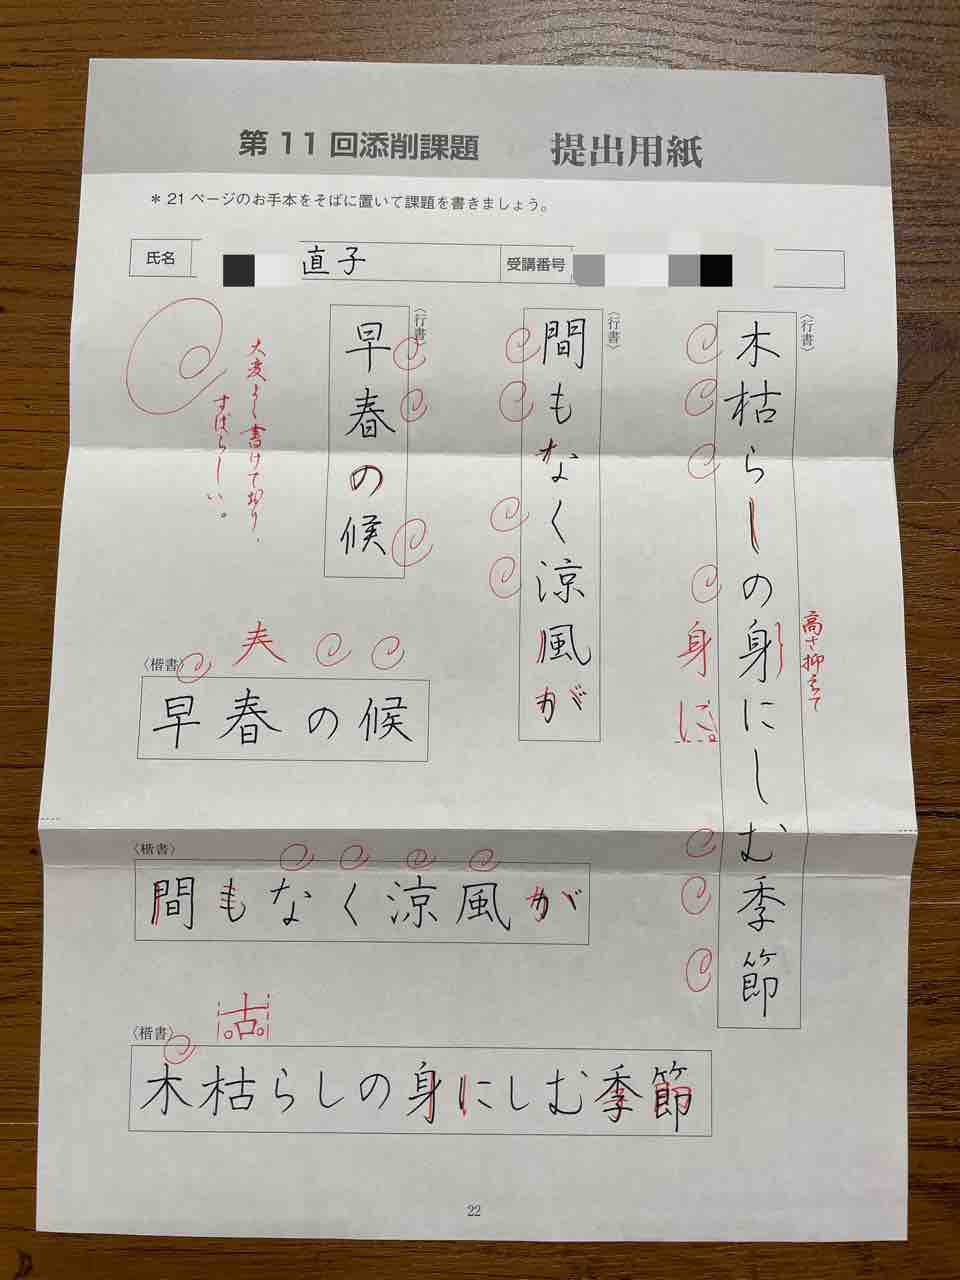 第11回添削課題 提出用紙
＊21ページのお手本をそばに置いて課題を書きましょう。
氏名 直子 受講番号
〈行書〉
木枯らしの身にしむ季節
身
に
高さ抑えて
〈行書〉
間もなく涼風が
〈行書〉
早春の候
大変よく書けており、
すばらしい。
〈楷書〉
早春の候
〈楷書〉
間もなく涼風が
〈楷書〉
古
木枯らしの身にしむ季節
22